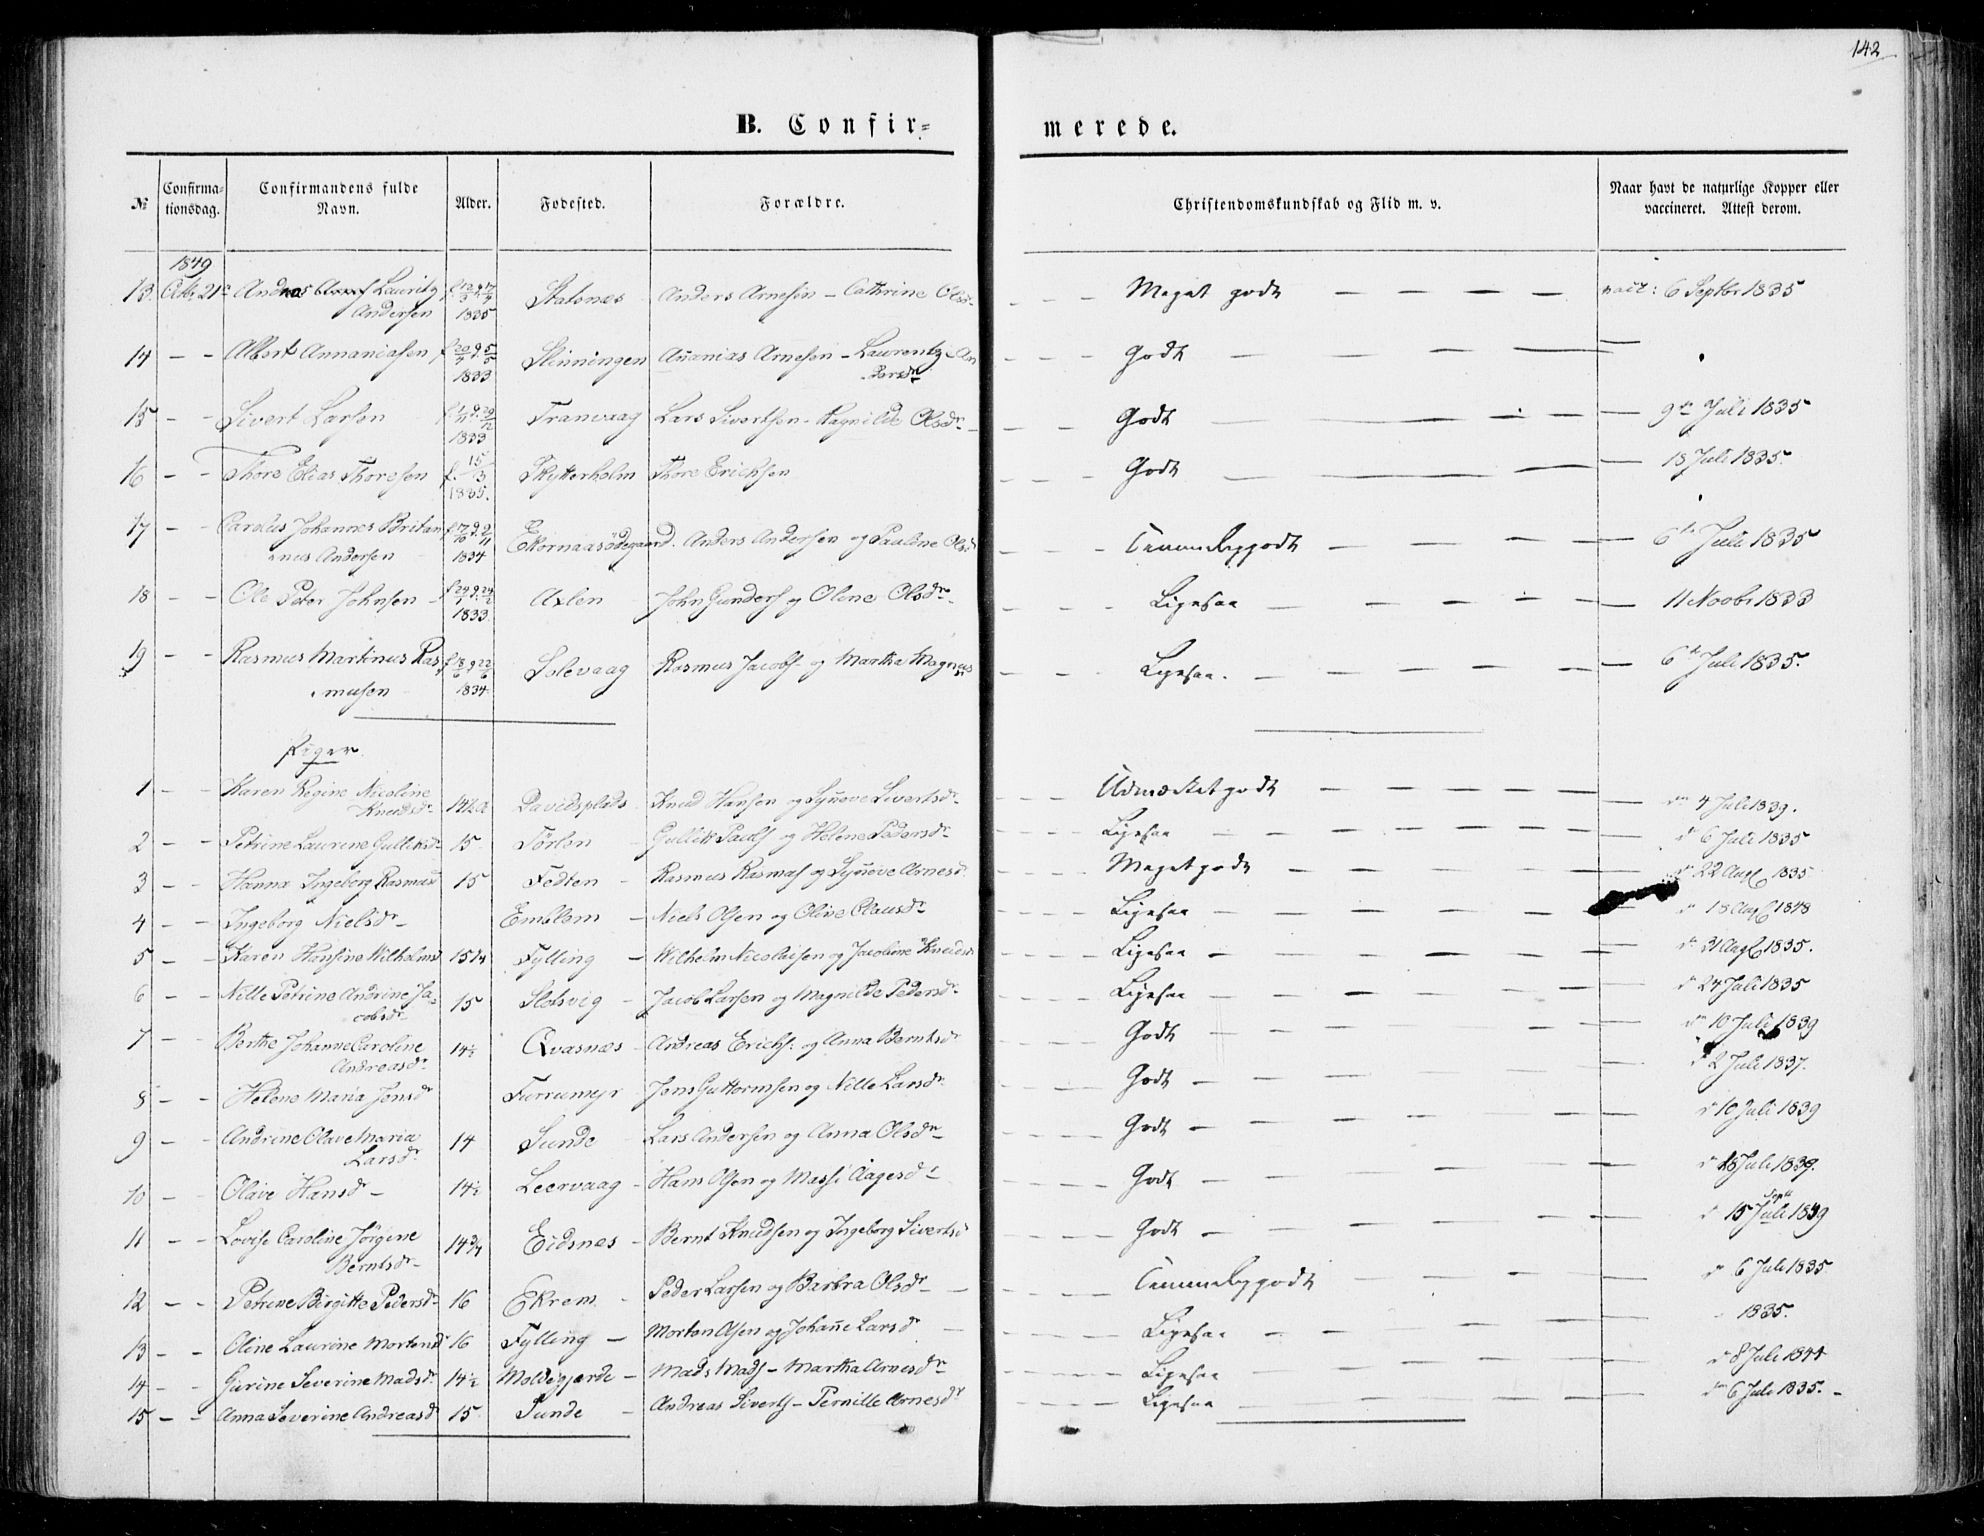 142
B. Confir=
merede.
№
Confirma-
tionsdag.
Confirmandens fulde
Navn.
Alder.
Fødested.
Forældre.
Christendomskundskab og Flid m. v.
Naar havt de naturlige Kopper eller
vaccineret. Attest derom.
1849
13. Octbr 21de Andreas Lauritz Statsnes Anders Arnesen - Cathrine Olsdr - - - Meget godt - - - - vacc: 6 Septbr 1835
Andersen 1835
14 - - Albert Annaniasen f 20/4 d. 5/5 Skinningen Ananias Arnesen - Laurentze An - - - Godt - - - - -
1833 dersdr
15 - - Sivert Larsen Tranvaag Lars Sivertsen - Ragnilde Olsdr - - - Godt - - - 9de Juli 1835
1833
16 - - Thore Elias Thoresen f. 15/3 Skytterholm Thore Ericksen - - - Godt - - - 18 Juli 1835.
1835.
17 - - Carolus Johannes Britan Ekornaasødegaard. Anders Andersen og Pauline Olsd - - - Temmelig godt - - - - 6te Juli 1835
nus Andersen 1834
18 - - Ole Peter Johnsen - f 24/1 d. 24/2 Axlen John Gunders og Oline Olsdr - - - Ligesaa - - - - 11 Novbr 1833
1833.
19 - - Rasmus Martinus Ras f 18/6 d 22/6 Solevaag Rasmus Jacobs - og Martha Magnus - - - Ligesaa. - - - - 6te Juli 1835.
musen 1834
Piger
1 - - Karen Regine Nicoline
Knudsdr 14½ Davidsplads Knud Hansen og Synøve Sivertsdr - - - Udmærket godt - - - - - dn 4 Juli 1839.
2 - - Petrine Laurine Gulliksdr 15. Tørlen - Gullik Pauls og Helene Pedersdr - - - Ligesaa - - - - - d 6 Juli 1835
3 - - Hanna Ingeborg Rasmus 15 Fedten - Rasmus Rasmus og Synøve Arnesd - - - Meget godt - - - - - d 22 Aug 1835
4 - - Ingeborg Nielsdr - Emblem - Niels Olsen og Olive Clausdr - - - Ligesaa - - - - - d 18 Aug 1848
5 - - Karen Hansine Wilhelms 15¼ Fylling - Wilhelm Nicolaisen og Jacobine Knudsd - - - Ligesaa - - - - - dn 31 Aug 1835.
6 - - Nille Petrine Andrine Ja= 15 Slotsvig - Jacob Larsen og Magnilde Pedersdr - - - Ligesaa - - - - - d 24 Juli 1835
cobsdr
7 - - Berthe Johanne Caroline 14½ Qvasnes - Andreas Erichs: og Anna Berntsdr - - - Godt - - - dn 10 Juli 1839
Andreasdr
8 - - Helene Maria Jensdr Furrumyr - Jens Guttormsen og Nille Larsdr - - - Godt - - - - - d 2 Juli 1837.
9 - - Andrine Olave Maria 14 Sunde - Lars Andersen og Anna Olsdr - - - Godt - - - - - d 10 Juli 1839
Larsdr
10 - - Olave Hansdr - 14½ Leervaag - Hans Olsen og Massi Aagesdr - - - Godt - - - - - d 18 Juli 1839.
11 - - Lovise Caroline Jørgine 14¾ Eidsnes - Bernt Knudsen og Ingeborg Sivertsd - - - Godt - - - - - d 15 Juli 1839
Berntsdr - Sept
12 - - Petrine Birgitte Pedersdr 16 Ekrem - Peder Larsen og Barbra Olsdr - - - Temmelig godt - - - - d 6 Juli 1835
13 - - Oline Laurine Mortensd 16 Fylling - Morten Olsen og Johanne Larsd - - - Ligesaa - - - - - 1835.
14 - - Gurine Severine Madsdr 14½ Moldegjærde - Mads Mads - Martha Arnesdr - - - Ligesaa - - - - d 8 Juli 1844
15 - - Anna Severine Andreasd 15 Sunde - Andreas Siverts - Pernille Arnesdr - - - Ligesaa - - - - - dn 6 Juli 1835. -